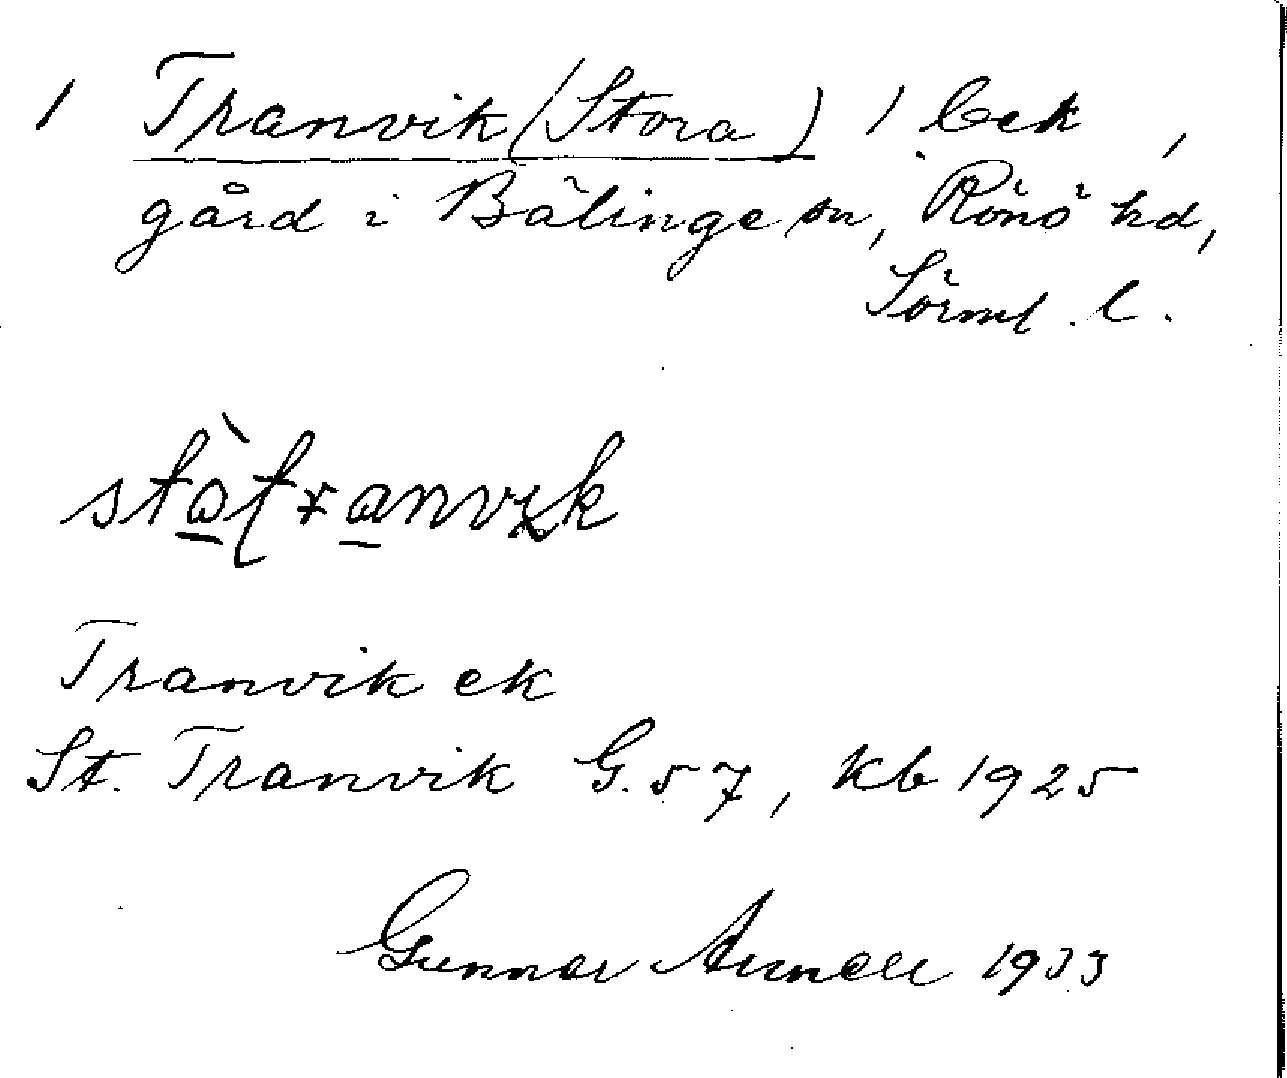 1 Tranvik (Stora) 1 bek,
gård i Bälinge sn, Rönö hd,
Sörml. l.
Tranvik ek
St. Tranvik G.57, kb 1925
Gunnar 1933